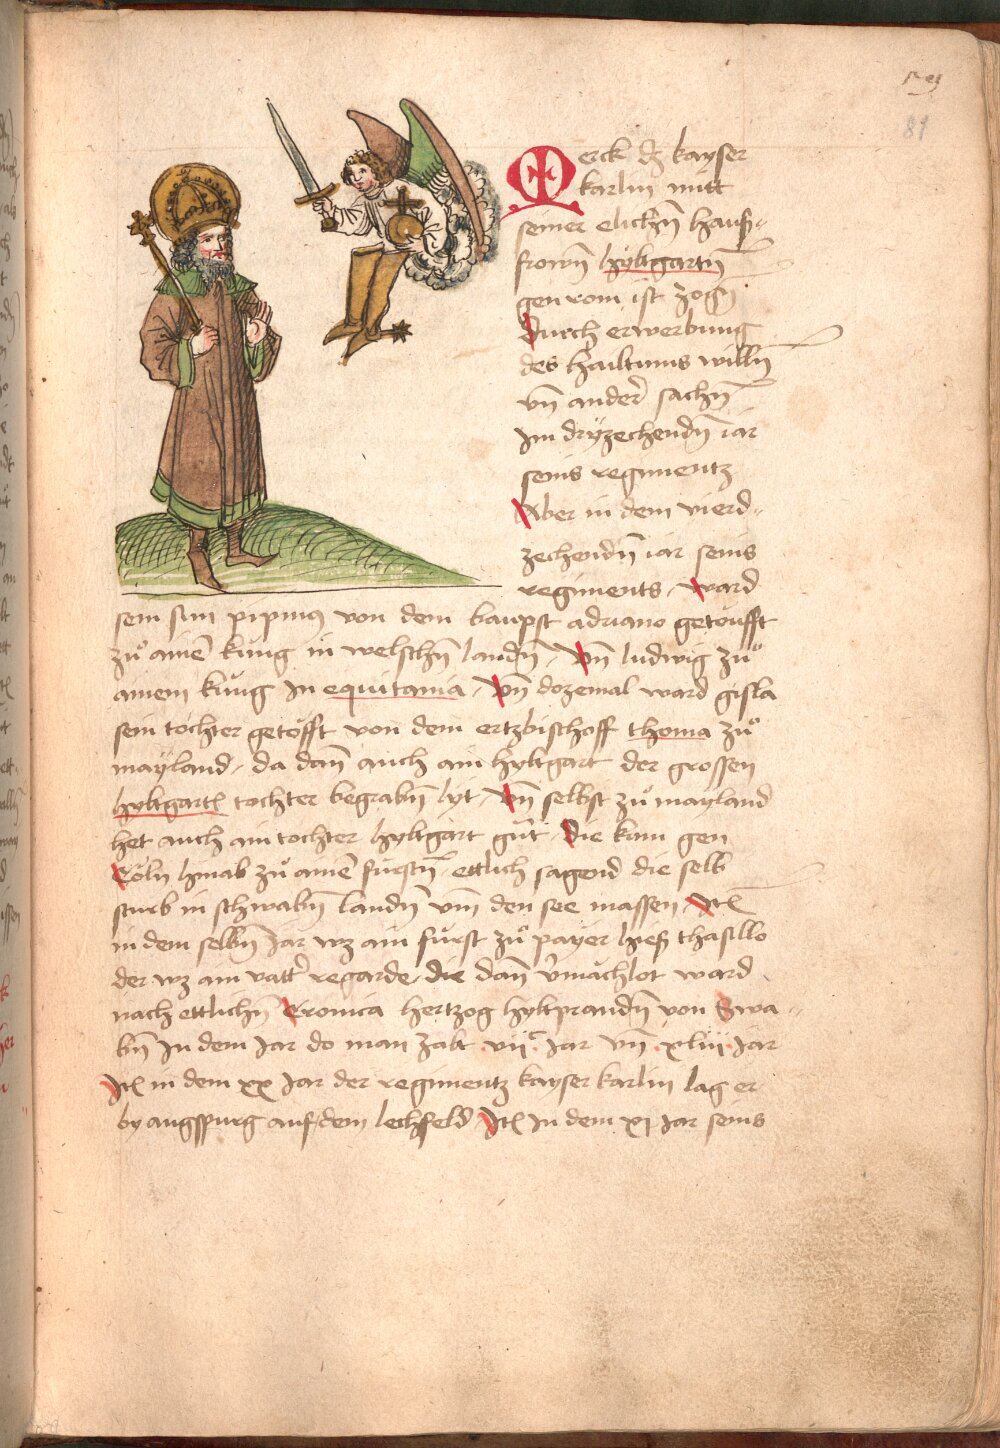 81
Merck dz kayser
karlin mitt
seiner elichñ hauß-
frowñ hyltgartñ
gen rom ist zogñ
Durch erwerbung
des hailtums willñ
vñ anderˀ sachñ
Im dryzechendñ iar
seins regimentz
Aber in dem vierd-
zechendñ iar seins
regiments, ward
sein sun pipinus von dem baupst adriano getoufft
zuͦ ainē küng in welschñ landñ, Vñ ludwig zuͦ
ainem küng In equitania, Vñ dozemal ward gisla
sein tochter getöfft von dem ertzbischoff thoma zuͦ
mayland, da dañ auch ain hyltgart der grossen
hyltgartñ tochter begrabñ lyt, Vñ selbst zuͦ mayland
het auch ain tochter hyltgart guͦt, Die kam gen
Cöln hinab zuͦ ainē fürstñ, ettlich sagend die selb
sturb in schwabñ landñ vm̄ den see massen, Itē
in dem selbñ Jar wz ain fürst zuͦ payer hieß thasillo
der wz ain vattˀ regarde, die dañ vˀmächlot ward
nach ettlichñ Cronica hertzog hyltprandñ von Swa-
bñ In dem Jar do man zalt vijᶜ Jar vñ xliij Jar
Itē in dem xx Jar der regimentz kayser karlin lag er
by augspurg auf dem lechfeld, Itē In dem xj Jar seins